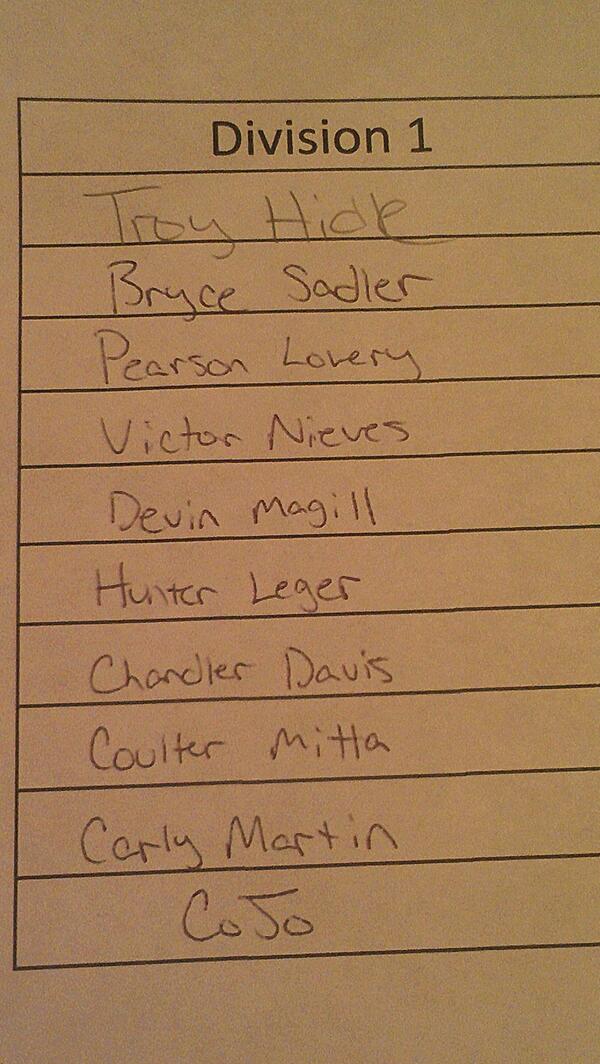 Division 1
Troy Hide
Bryce Sadler
Pearson Lovery
Victor Nieves
Devin Magill
Hunter Leger
Chandler Davis
Coulter Mitta
Carly Martin
CoJo